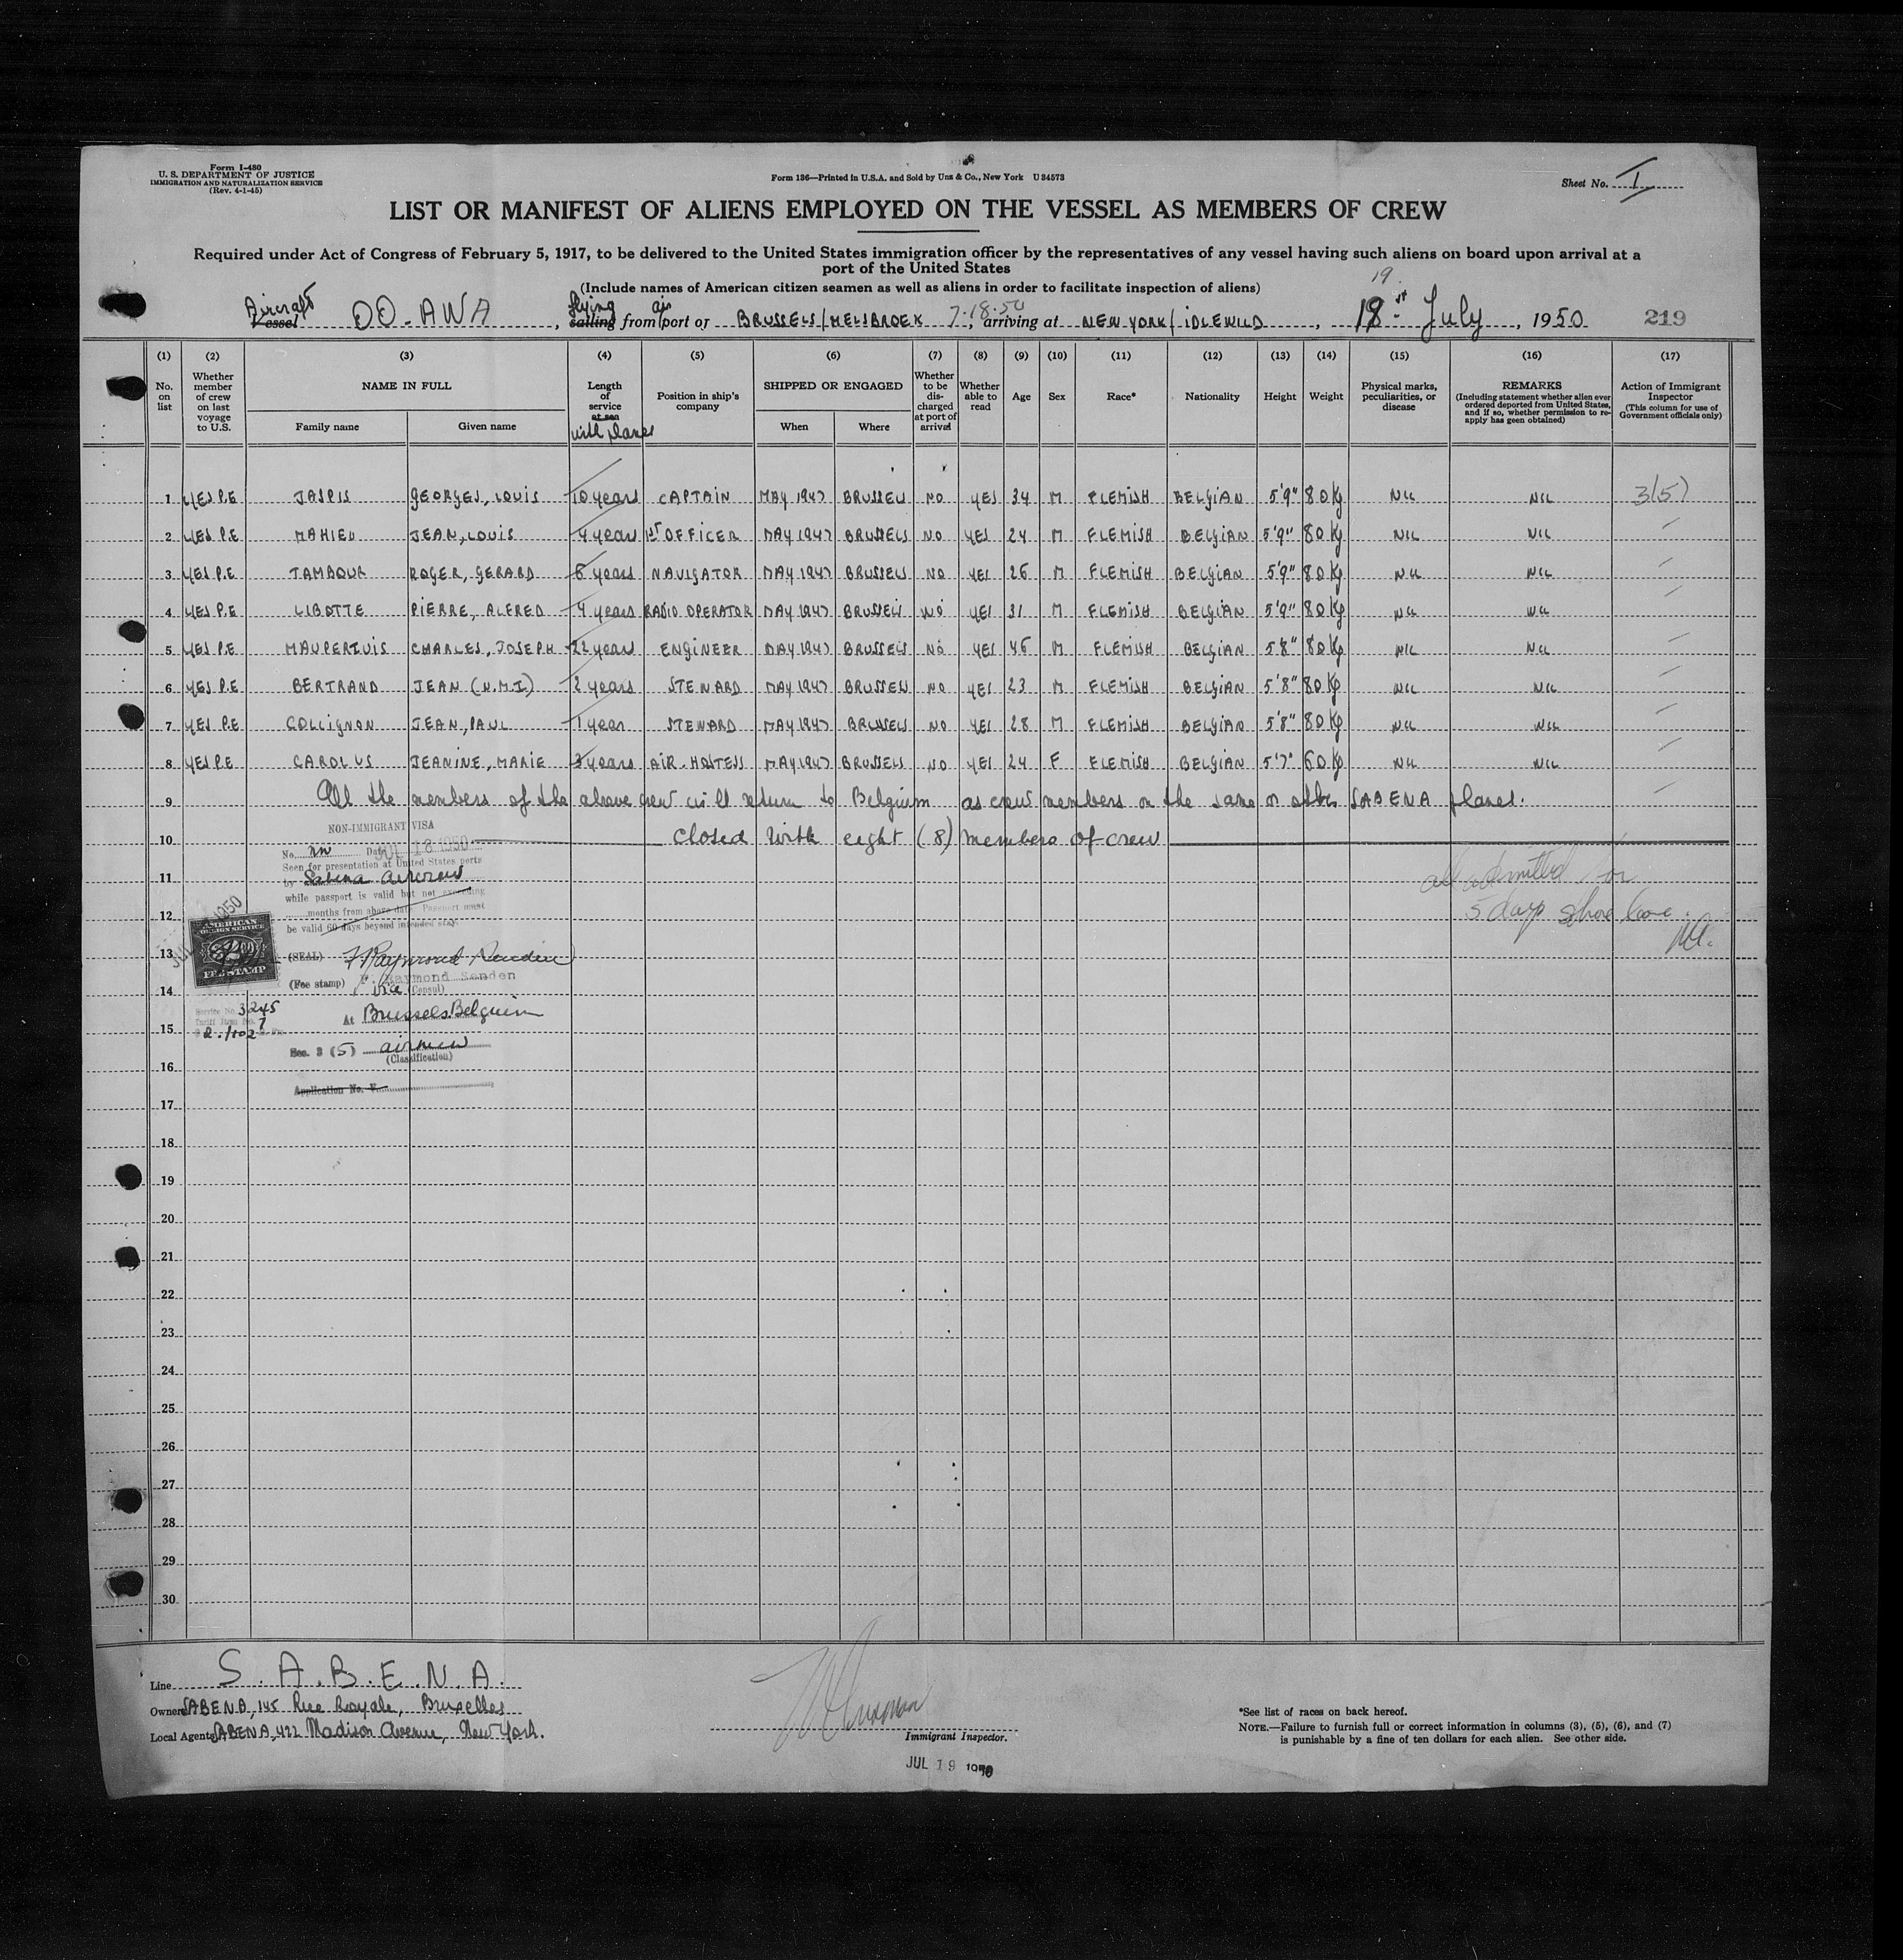 Form I-480
U. S. DEPARTMENT OF JUSTICE
IMMIGRATION AND NATURALIZATION SERVICE
(Rev. 4-1-45)
Form 136—Printed in U.S.A. and Sold by Unz & Co., New York U 34573
Sheet No. I
LIST OR MANIFEST OF ALIENS EMPLOYED ON THE VESSEL AS MEMBERS OF CREW
Required under Act of Congress of February 5, 1917, to be delivered to the United States immigration officer by the representatives of any vessel having such aliens on board upon arrival at a
port of the United States
(Include names of American citizen seamen as well as aliens in order to facilitate inspection of aliens)
19
Aircraft flying air
Vessel OO-AWA, sailing from port of BRUSSELS/MELSBROEK 7-18-50, arriving at NEW YORK/IDLEWILD, 18 st July, 1950 219
(1) (2) (3) (4) (5) (6) (7) (8) (9) (10) (11) (12) (13) (14) (15) (16) (17)
No. on list
Whether member of crew on last voyage to U.S.
NAME IN FULL
Family name
Given name
Length of service at sea
with planes
Position in ship's company
SHIPPED OR ENGAGED
When
Where
Whether to be discharged at port of arrival
Whether able to read
Age
Sex
Race*
Nationality
Height
Weight
Physical marks, peculiarities, or disease
REMARKS
(Including statement whether alien ever ordered deported from United States, and if so, whether permission to re-apply has geen obtained)
Action of Immigrant Inspector
(This column for use of Government officials only)
1 YES P.E JASPIS GEORGES, LOUIS 10 years CAPTAIN MAY 1947 BRUSSELS NO YES 34 M FLEMISH BELGIAN 5'9" 80 Kg NIL NIL 3(5)
2 YES P.E MAHIEU JEAN, LOUIS 4 years 1st OFFICER MAY 1947 BRUSSELS NO YES 24 M FLEMISH BELGIAN 5'9" 80 Kg NIL NIL
3 YES P.E TAMBOUR ROGER, GERARD 6 years NAVIGATOR MAY 1947 BRUSSELS NO YES 26 M FLEMISH BELGIAN 5'9" 80 Kg NIL NIL
4 YES P.E LIBOTTE PIERRE, ALFRED 4 years RADIO OPERATOR MAY 1947 BRUSSELS NO YES 31 M FLEMISH BELGIAN 5'9" 80 Kg NIL NIL
5 YES P.E MAUPERTUIS CHARLES, JOSEPH 22 years ENGINEER MAY 1947 BRUSSELS NO YES 46 M FLEMISH BELGIAN 5'8" 80 Kg NIL NIL
6 YES P.E BERTRAND JEAN (N.M.I.) 2 years STEWARD MAY 1947 BRUSSELS NO YES 23 M FLEMISH BELGIAN 5'8" 80 Kg NIL NIL
7 YES P.E COLLIGNON JEAN, PAUL 1 year STEWARD MAY 1947 BRUSSELS NO YES 28 M FLEMISH BELGIAN 5'8" 80 Kg NIL NIL
8 YES P.E CAROLUS JEANINE, MARIE 3 years AIR-HOSTESS MAY 1947 BRUSSELS NO YES 24 F FLEMISH BELGIAN 5'7" 60 Kg NIL NIL
9 All the members of the above crew will return to Belgium as crew members on the same or other SABENA planes.
10 closed with eight (8) members of crew
NON-IMMIGRANT VISA
No. Date JUL 18 1950
Seen for presentation at United States ports
11 by Sabena aircrew all admitted for
while passport is valid but not exceeding
12 months from above date. Passport must 5 days shore leave.
be valid 60 days beyond intended stay.
AMERICAN
FOREIGN SERVICE
FEE STAMP
13 (SEAL)
(Fee stamp) Raymond Senden
Vice (Consul)
14
Service No. 3245
Tariff Item No. 7
At Brussels Belgium
15
Sec. 3 (5) aircrew
(Classification)
16
Application No. V
17
18
19
20
21
22
23
24
25
26
27
28
29
30
Line S.A.B.E.N.A.
Owners SABENA, 145 Rue Royale, Bruxelles
Local Agents SABENA, 422 Madison Avenue, New York.
Immigrant Inspector.
JUL 19 1950
*See list of races on back hereof.
NOTE.—Failure to furnish full or correct information in columns (3), (5), (6), and (7)
is punishable by a fine of ten dollars for each alien. See other side.